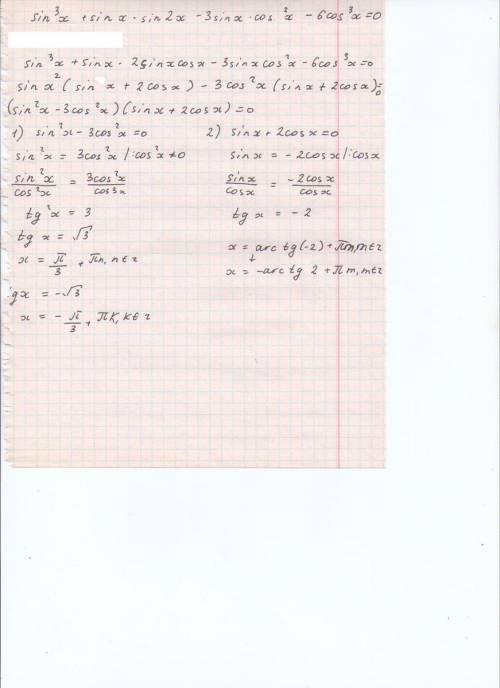 sin³x + sin x · sin 2x - 3 sin x · cos²x - 6 cos³x = 0
sin³x + sin x · 2 sin x cos x - 3 sin x cos²x - 6 cos³x = 0
sin x² ( sin x + 2 cos x ) - 3 cos²x ( sin x + 2 cos x ) = 0
(sin²x - 3 cos²x ) ( sin x + 2 cos x ) = 0
1) sin²x - 3 cos²x = 0
sin²x = 3 cos²x / : cos²x ≠ 0
sin²x / cos²x = 3 cos²x / cos²x
tg²x = 3
tg x = √3
x = π/3 + πn, n ∈ z
tg x = -√3
x = - π/3 + πk, k ∈ z
2) sin x + 2 cos x = 0
sin x = - 2 cos x / : cos x
sin x / cos x = -2 cos x / cos x
tg x = - 2
x = arc tg (-2) + πm, m ∈ z
↓
x = - arc tg 2 + πm, m ∈ z